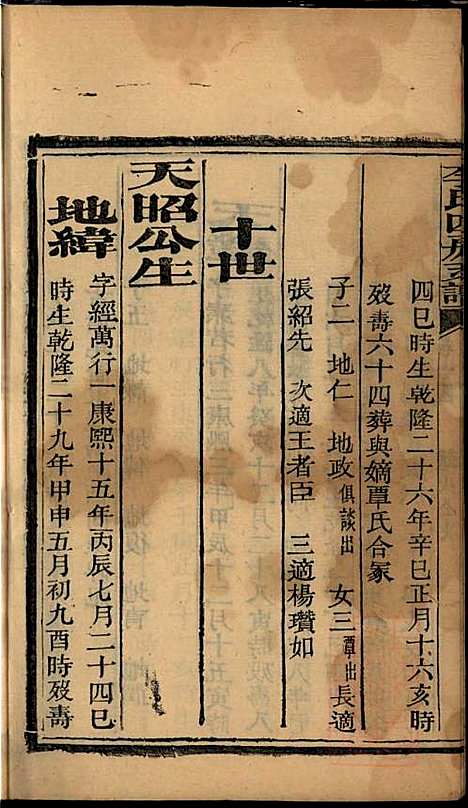 李氏四房支譜
四巳時生乾隆二十六年辛巳正月十六亥時
歿壽六十四葬與嫡覃氏合冢
子二 地仁 地政俱談出 女三覃出長適
張紹先 次適王者臣 三適楊瓚如
十世
天昭公生
地緯 字經萬行一康熙十五年丙辰七月二十四巳
時生乾隆二十九年甲申五月初九酉時歿壽